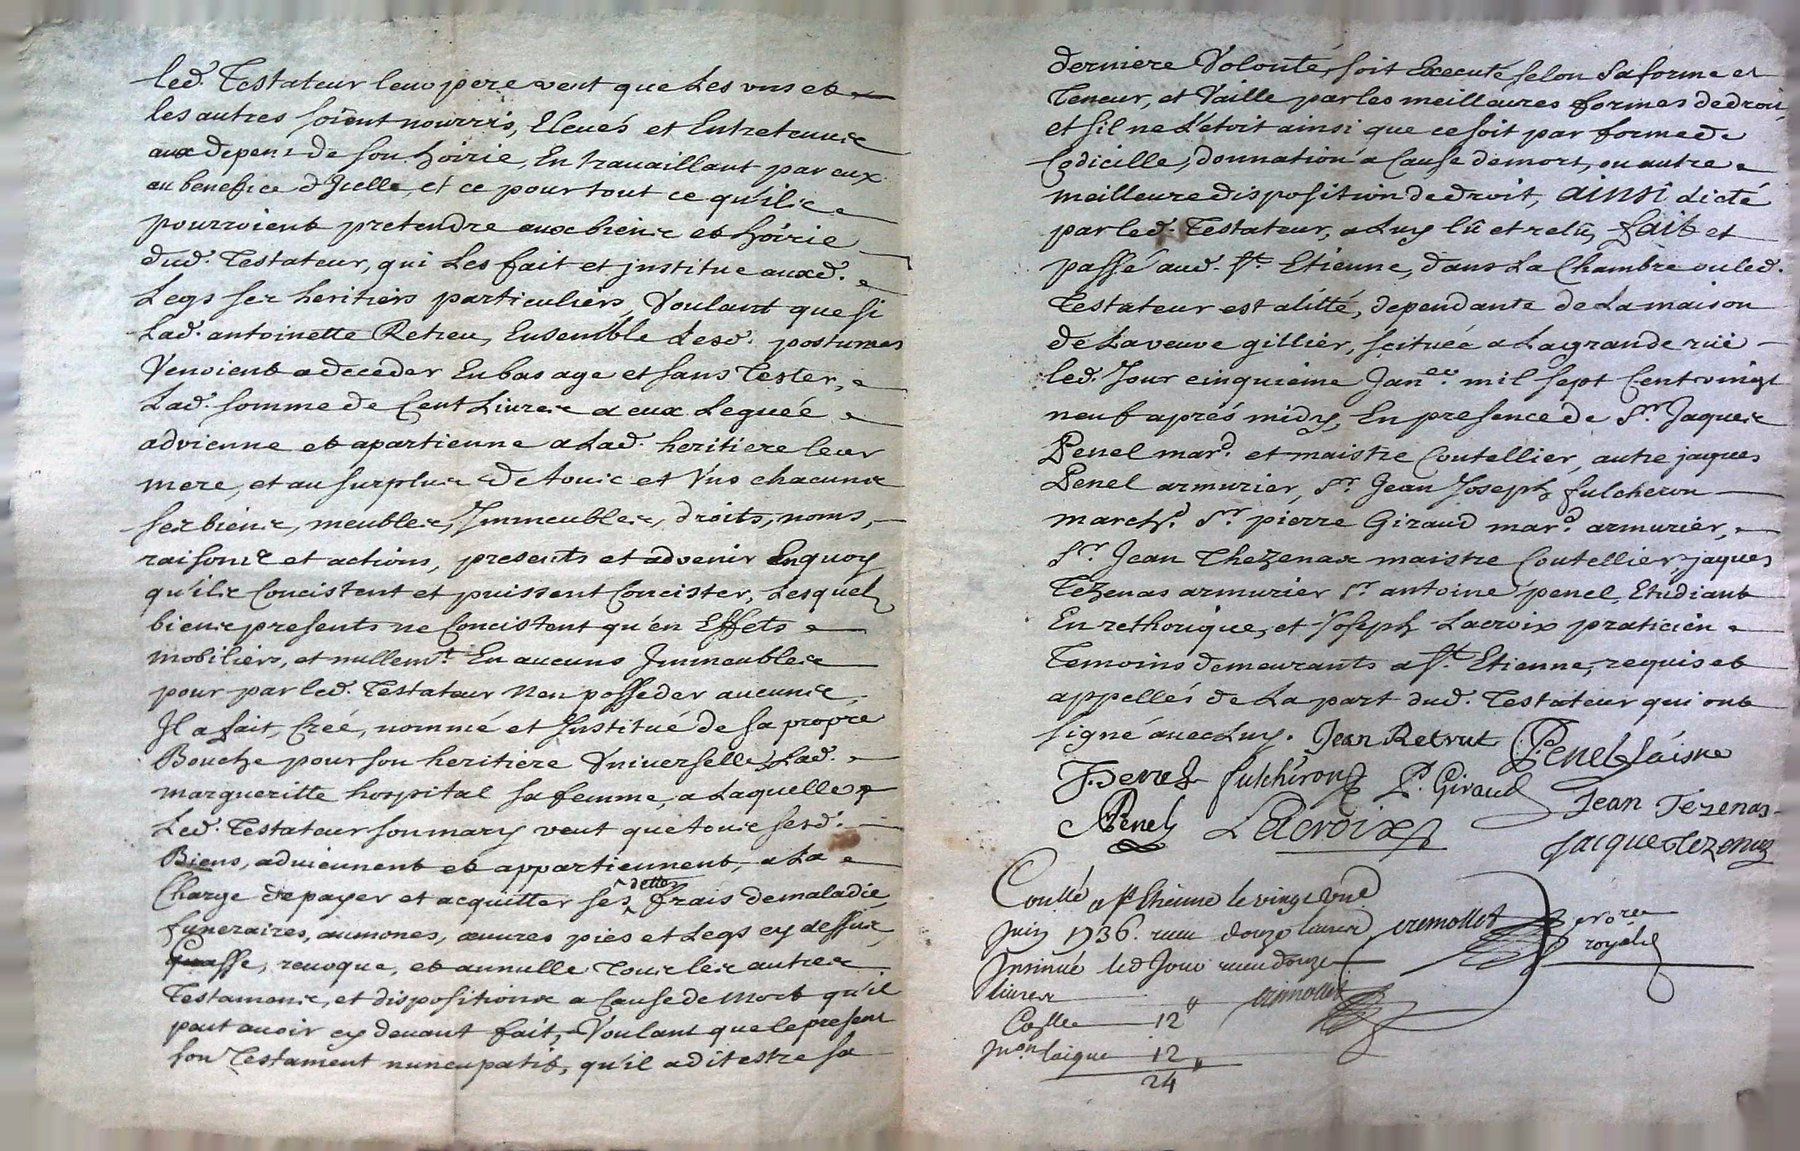 led. Testateur leur pere veut que Les uns et
les autres soient nourris, Elevés et Entretenus
aux depens de son hoirie, En travaillant par eux
au benefice d'Jcelle, et ce pour tout ce qu'ils
pourroient pretendre aux biens et hoirie
dud. Testateur, qui Les fait et jnstitue auxd.
Legs ses heritiers particuliers, Voulant que si
Lad. antoinette Retru, Ensemble Lesd. postumes
Venoient a deceder En bas age et sans Tester,
Lad. somme de Cent Livres a eux Leguée
advienne et apartienne a Lad. heritiere leur
mere, et au surplus De tous et Uns chacuns
ses biens, meubles, Jmmeubles, droits, noms,
raisons et actions, presents et advenir Enquoy
qu'ils Concistent et puissent Concister, Lesquels
biens presents ne Concistent qu'en Effets
mobiliers, et nullemt. En aucuns Jmmeubles
pour par led. Testateur N'en posseder aucuns,
Jl a fait, Créé, nommé et Jnstitué de sa propre
Bouche pour son heritiere Universelle Lad.
margueritte hospital sa femme, a Laquelle
Led. Testateur son mary veut que tous sesd.
Biens, adviennent et appartiennent, a La
Charge de payer et acquitter ses dettes frais de maladie,
funeraires, aumones, œuvres pies et Legs cy dessus,
Casse, revoque, et annulle Tous les autres
Testamens, et dispositions a Cause de Mort qu'il
peut avoir cy devant fait, Voulant que le present
son Testament nuncupatif, qu'il a dit estre sa
derniere Volonté, soit Executé selon sa forme et
Teneur, et Vaille par les meilleures formes de droit,
et s'il ne L'etoit ainsi que ce soit par forme de
Codicille, donnation a Cause de mort, ou autre
meilleure disposition de droit, ainsi dicté
par led. Testateur, a Luy lû et relû, fait et
passé aud. St. Etienne, dans La Chambre ou led.
Testateur est alitté, dependante de La maison
de La veuve gillier, scituée a La grande rüe
led. Jour cinquieme Janer. mil sept Cent vingt
neuf aprés midy, En presence de Sr. Jaques
Penel mard. et maistre Coutellier, autre jaques
Penel armurier, Sr. Jean Joseph fulcheron
march. Sr. pierre Giraud mard. armurier,
Sr. Jean Thezenas maistre Coutellier, jaques
Tezenas armurier Sr. antoine penel, Etudiant
En rethorique, et Joseph Lacroix praticien
Temoins demeurants a St. Etienne, requis et
appellés de La part dud. Testateur qui ont
signé avec Luy. Jean Retrut Penel Laisne
J. Penel fulchiron P. Giraud Jean Tézenas
A Penel Lacroix Jacque tezenas
Conllé a St Etienne le vingt
Juin 1736. receu douze livres cremollet
royal
Jnsinué led Jour receu douze
livres cremollet
Conlle 12"
Jnon laique 12"
24